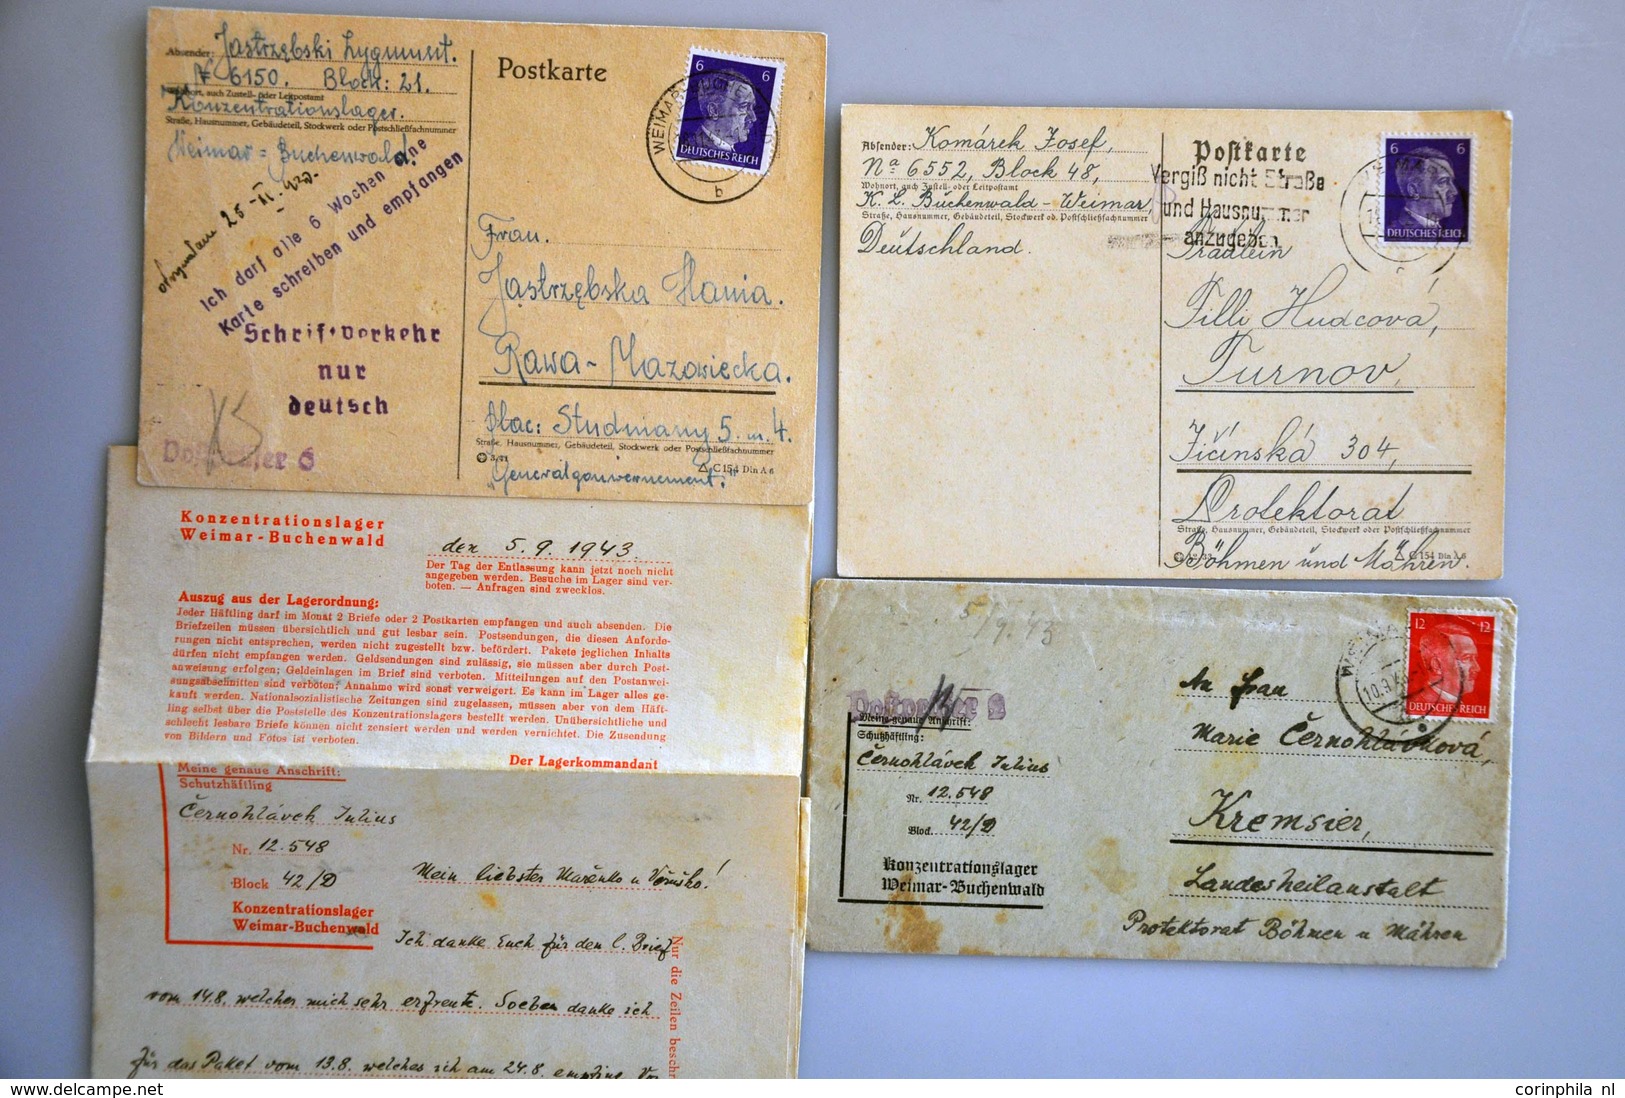 Absender: Jastrzębski Zygmunt.
№ 6150. Block: 21.
Wohnort, auch Zustell- oder Leitpostamt
Konzentrationslager.
Straße, Hausnummer, Gebäudeteil, Stockwerk oder Postschließfachnummer
Weimar = Buchenwald.
Ich darf alle 6 Wochen eine
Karte schreiben und empfangen
Schriftverkehr
nur
deutsch
Postprüfer 6
Postkarte
6 6
DEUTSCHES REICH
WEIMAR
b
Frau.
Jastrzębska Hania.
Rawa-Mazowiecka.
Plac: Studzianny 5. m. 4.
Straße, Hausnummer, Gebäudeteil, Stockwerk oder Postschließfachnummer
C 154 Din A 6
"Generalgouvernement."
Absender: Komárek Josef,
Nº 6552, Block 48,
Wohnort, auch Zustell- oder Leitpostamt
K. L. Buchenwald-Weimar,
Straße, Hausnummer, Gebäudeteil, Stockwerk od. Postschließfachnummer
Deutschland.
Postkarte
Vergiß nicht Straße
und Hausnummer
anzugeben
6 6
DEUTSCHES REICH
Fräulein
Tilli Hudcová,
Turnov,
Jičínská 304,
Protektorat
Straße, Hausnummer, Gebäudeteil, Stockwerk oder Postschließfachnummer
C 154 Din A 6
Böhmen und Mähren.
Konzentrationslager
Weimar-Buchenwald
den 5. 9. 1943.
Der Tag der Entlassung kann jetzt noch nicht
angegeben werden. Besuche im Lager sind ver-
boten. — Anfragen sind zwecklos.
Auszug aus der Lagerordnung:
Jeder Häftling darf im Monat 2 Briefe oder 2 Postkarten empfangen und auch absenden. Die
Briefzeilen müssen übersichtlich und gut lesbar sein. Postsendungen, die diesen Anforde-
rungen nicht entsprechen, werden nicht zugestellt bzw. befördert. Pakete jeglichen Inhalts
dürfen nicht empfangen werden. Geldsendungen sind zulässig, sie müssen aber durch Post-
anweisung erfolgen; Geldeinlagen im Brief sind verboten. Mitteilungen auf den Postanwei-
sungsabschnitten sind verboten; Annahme wird sonst verweigert. Es kann im Lager alles ge-
kauft werden. Nationalsozialistische Zeitungen sind zugelassen, müssen aber von dem Häft-
ling selbst über die Poststelle des Konzentrationslagers bestellt werden. Unübersichtliche und
schlecht lesbare Briefe können nicht zensiert werden und werden vernichtet. Die Zusendung
von Bildern und Fotos ist verboten.
Der Lagerkommandant
Meine genaue Anschrift:
Schutzhäftling
Černohlávek Julius
Nr. 12.548
Block 42/D
Konzentrationslager
Weimar-Buchenwald
Mein liebster Mařenko u
Ich danke Euch für den l. Brief
vom 14.8. welcher mich sehr erfreute. Soeben danke ich
für das Paket vom 13.8. welches ich am 24.8.
Nur die Zeilen beschr
5/9.43
Postprüfer
Meine genaue Anschrift:
Schutzhäftling:
Černohlávek Julius
Nr. 12.548
Block. 42/D
Konzentrationslager
Weimar-Buchenwald
12 12
DEUTSCHES REICH
10.9.43
An Frau
Marie Černohlávková,
Kremsier,
Landesheilanstalt
Protektorat Böhmen u Mähren
corinphila nl